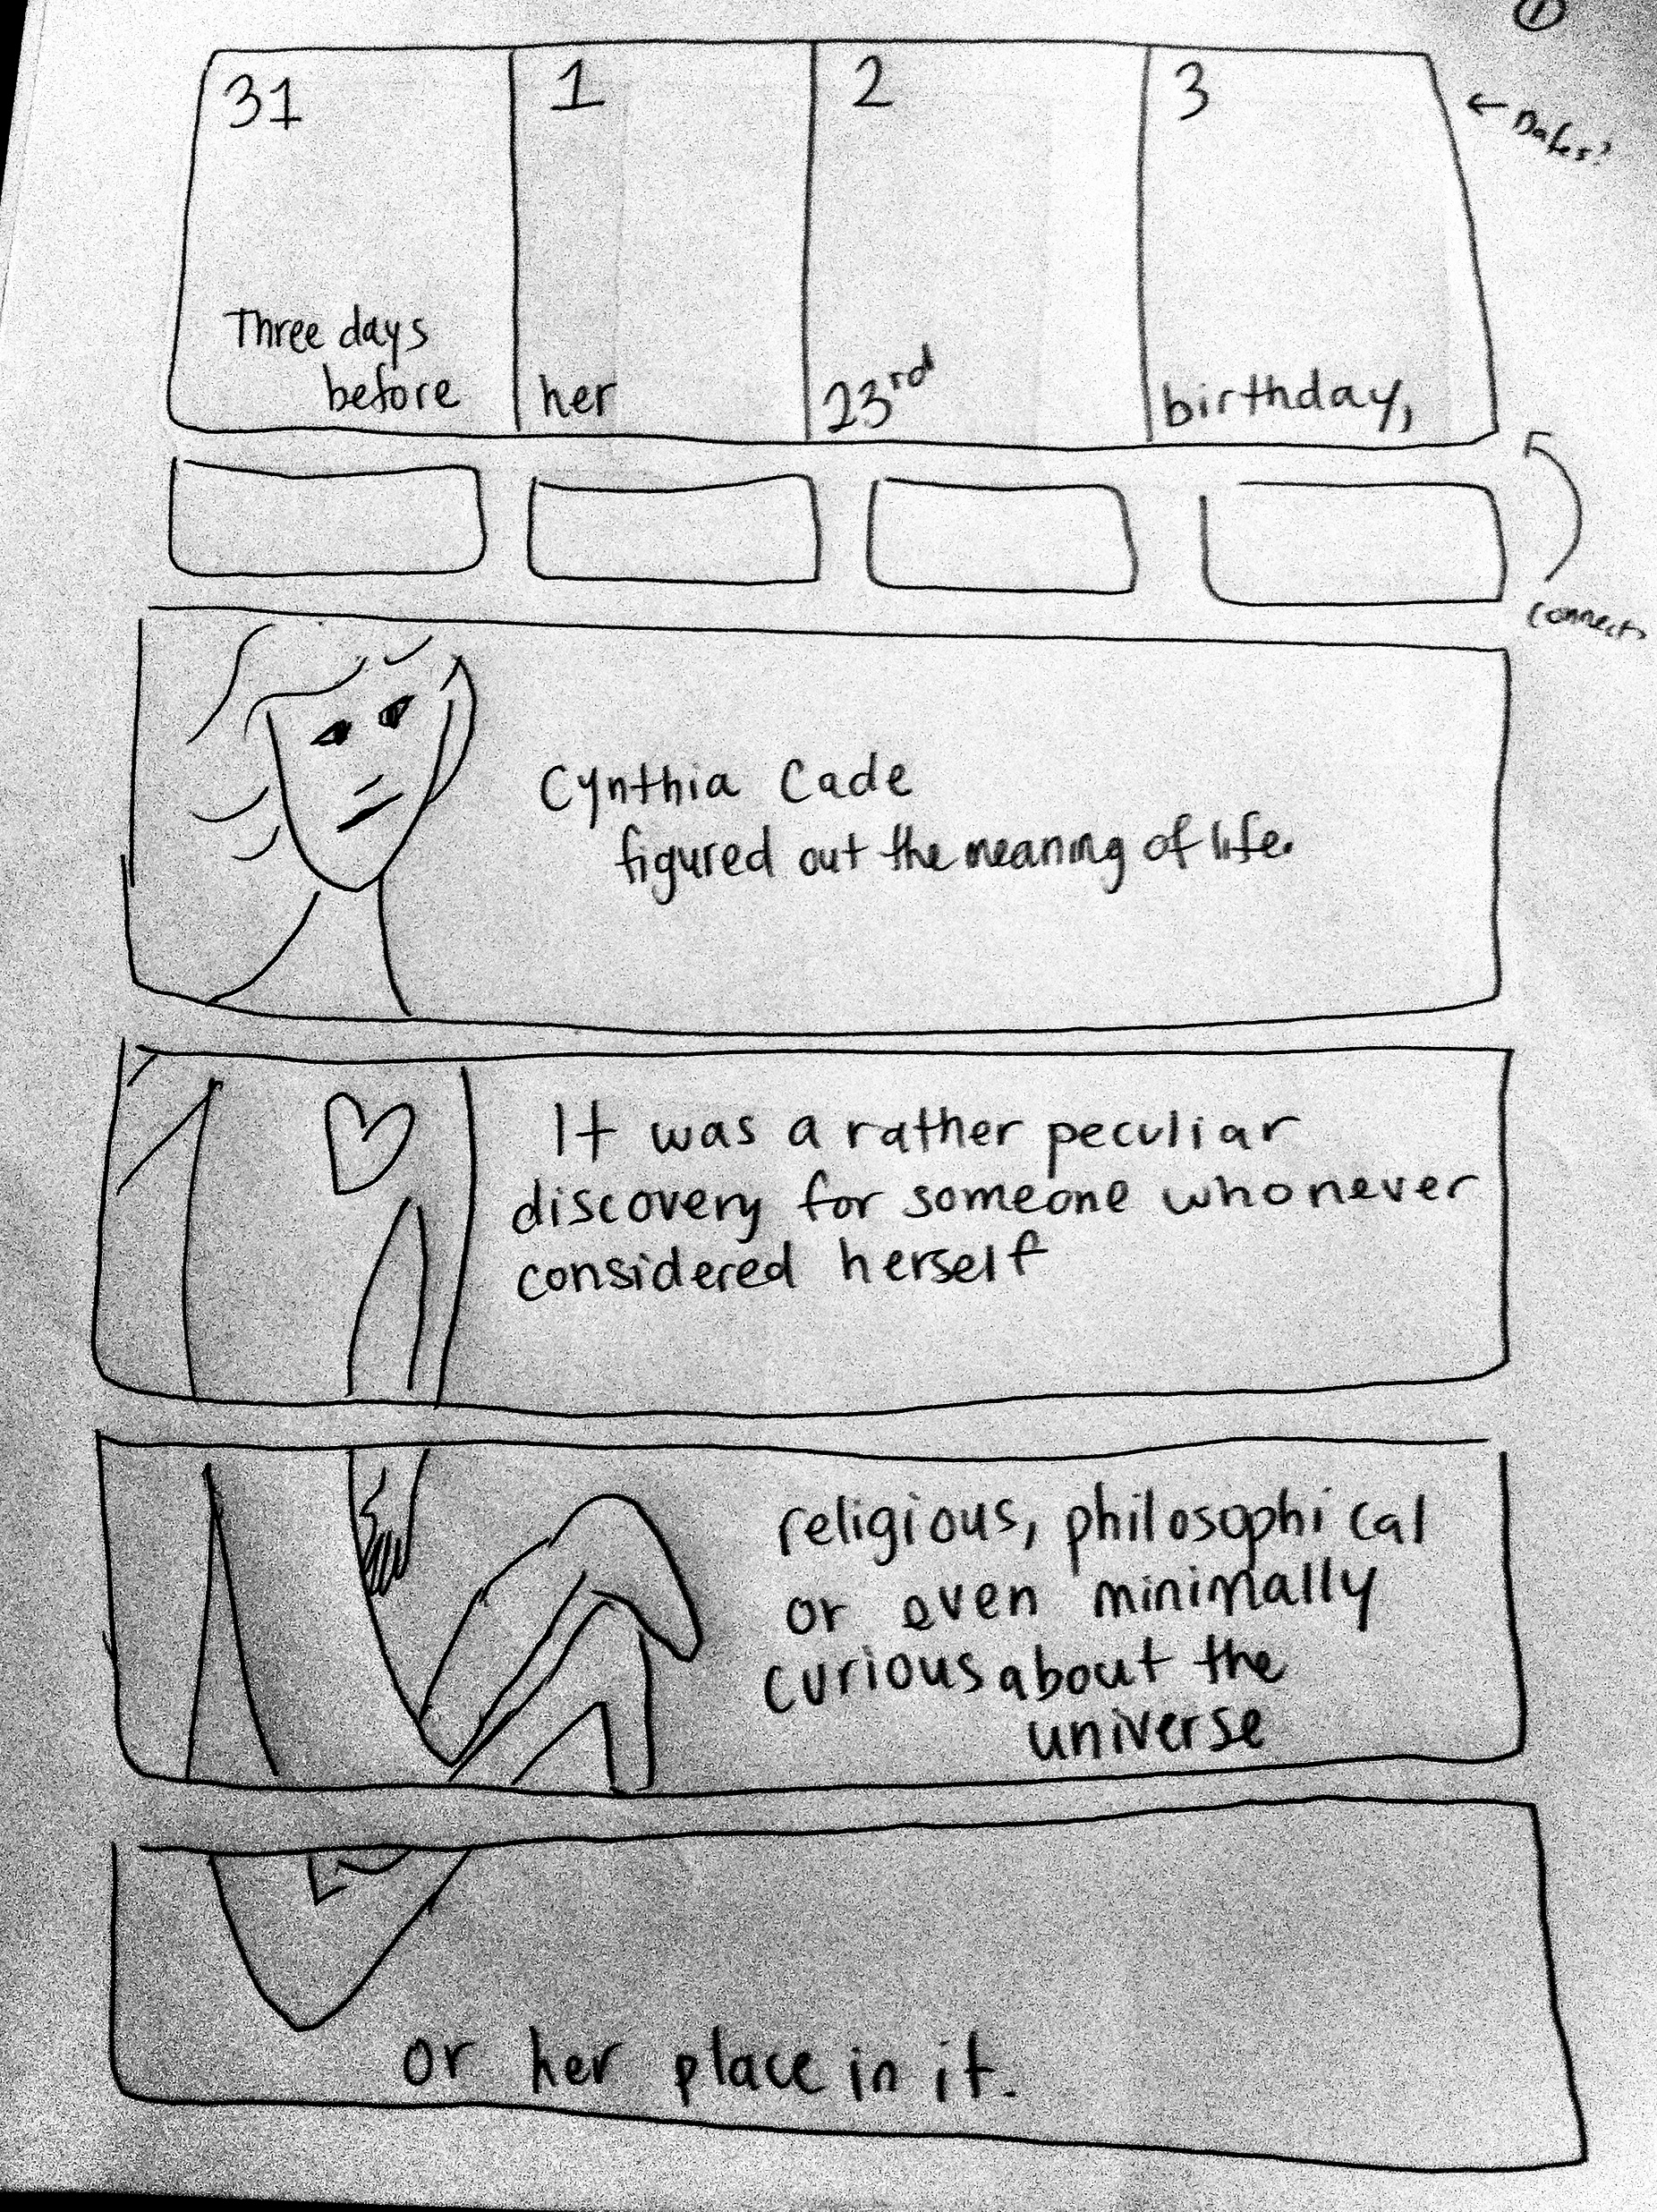 ①
31
1
2
3
← Dates?
Three days
before
her
23rd
birthday,
connects
Cynthia Cade
figured out the meaning of life.
It was a rather peculiar
discovery for someone who never
considered herself
religious, philosophical
or even minimally
curious about the
universe
or her place in it.